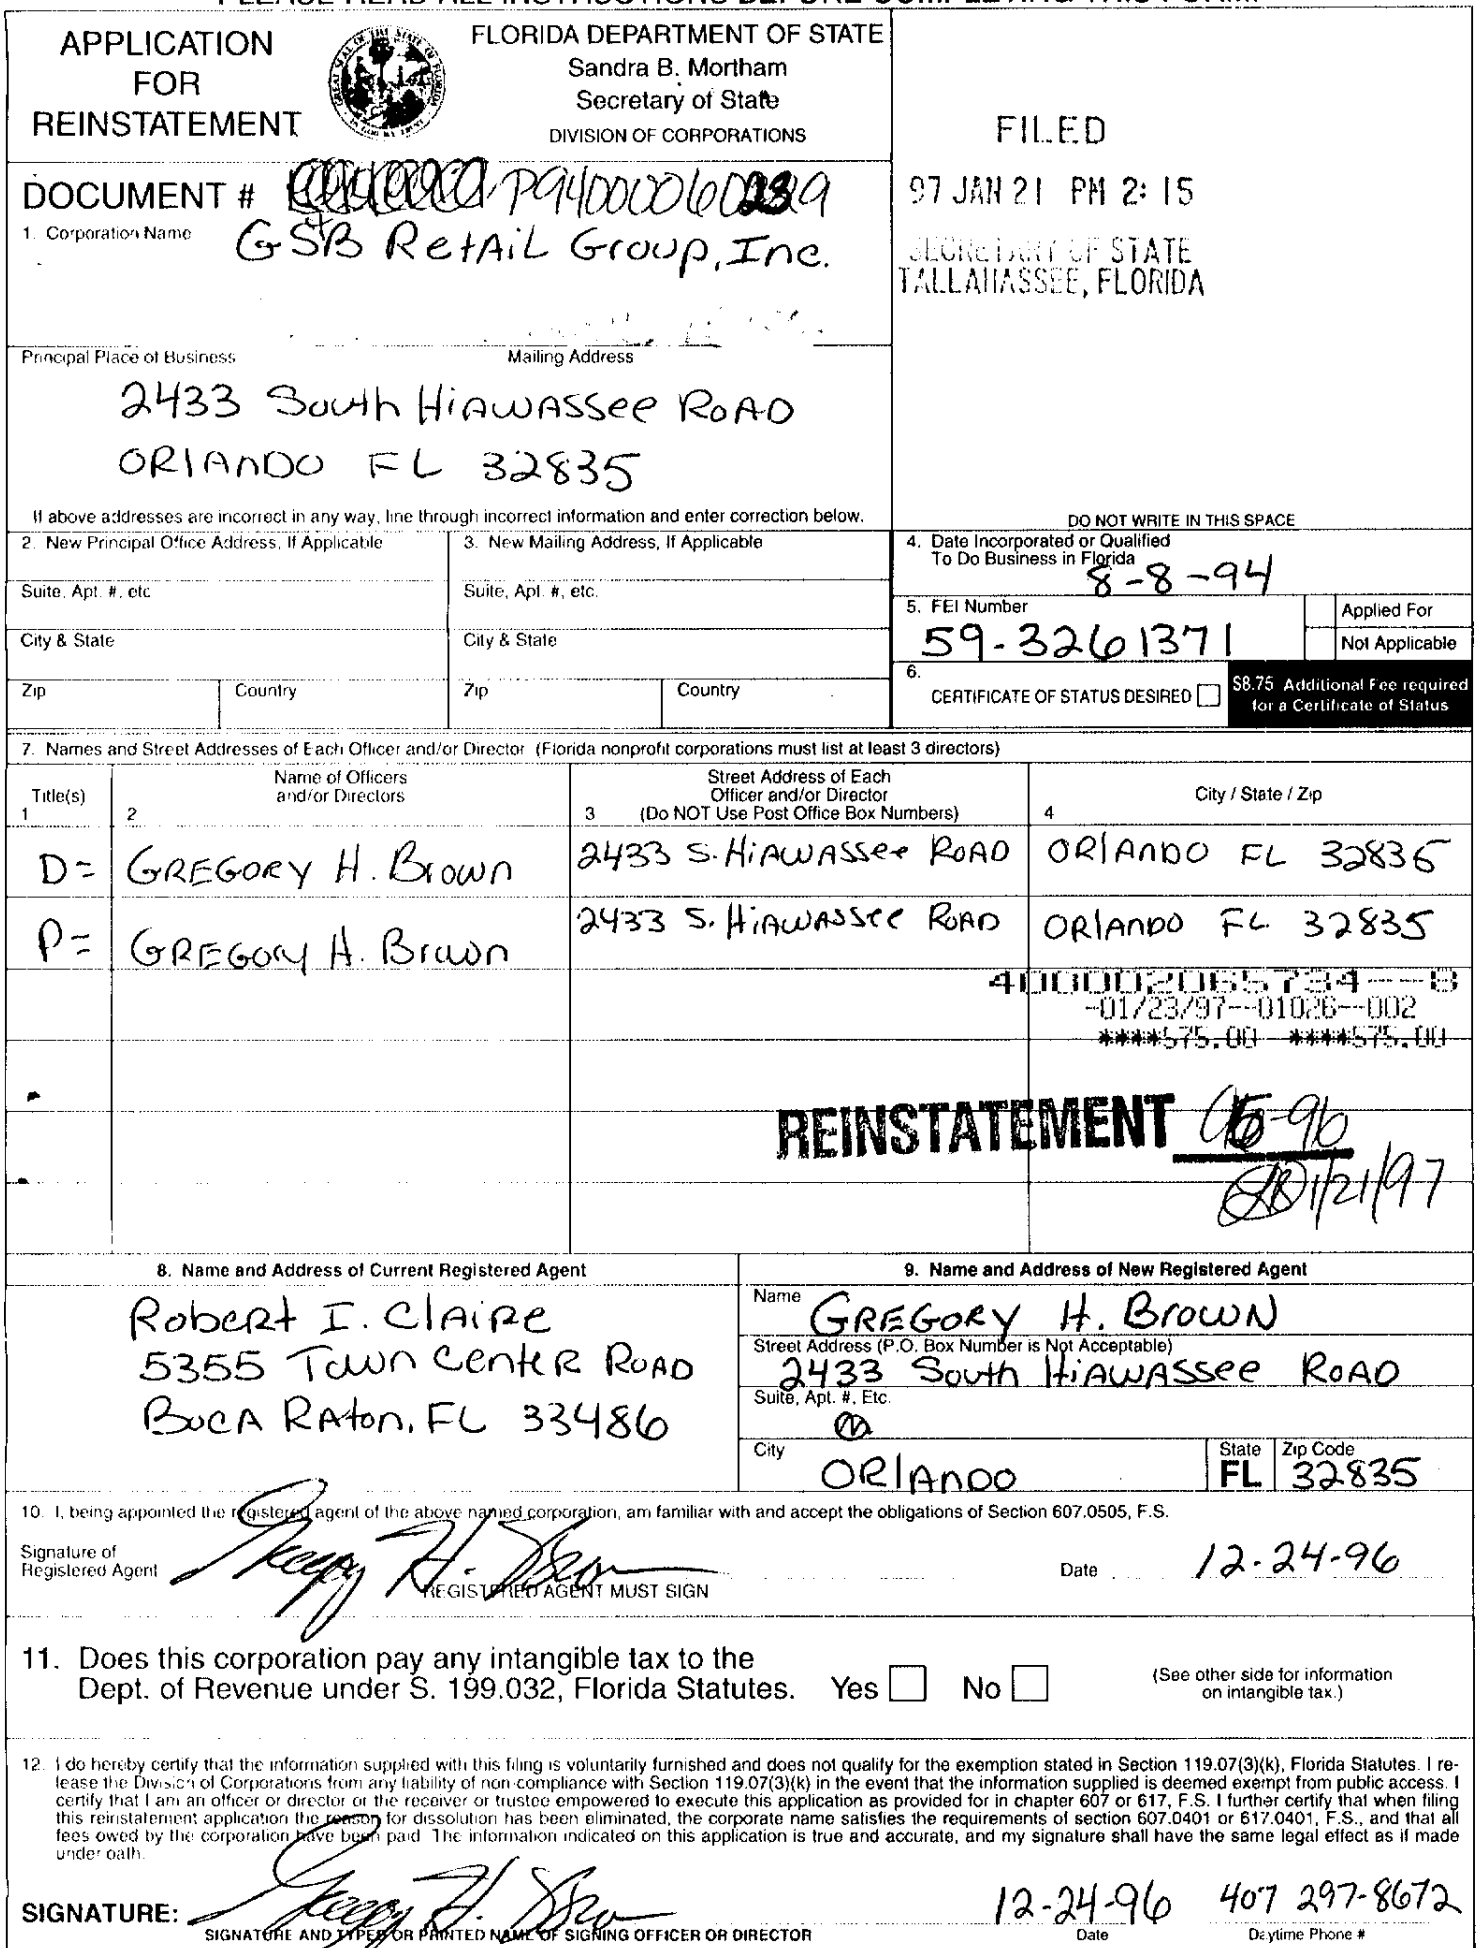 PLEASE READ ALL INSTRUCTIONS BEFORE COMPLETING THIS FORM.
APPLICATION
FOR
REINSTATEMENT
FLORIDA DEPARTMENT OF STATE
Sandra B. Mortham
Secretary of State
DIVISION OF CORPORATIONS
FILED
97 JAN 21 PM 2:15
SECRETARY OF STATE
TALLAHASSEE, FLORIDA
DOCUMENT #
1. Corporation Name
GSB Retail Group, Inc.
Principal Place of Business
Mailing Address
2433 South Hiawassee Road
Orlando FL 32835
If above addresses are incorrect in any way, line through incorrect information and enter correction below.
DO NOT WRITE IN THIS SPACE
2. New Principal Office Address, If Applicable
3. New Mailing Address, If Applicable
4. Date Incorporated or Qualified
To Do Business in Florida
8-8-94
Suite, Apt. #, etc.
Suite, Apt. #, etc.
5. FEI Number
59-3261371
Applied For
Not Applicable
City & State
City & State
6.
CERTIFICATE OF STATUS DESIRED
$8.75 Additional Fee required
for a Certificate of Status
Zip
Country
Zip
Country
7. Names and Street Addresses of Each Officer and/or Director (Florida nonprofit corporations must list at least 3 directors)
Title(s)
1
Name of Officers
and/or Directors
2
Street Address of Each
Officer and/or Director
3 (Do NOT Use Post Office Box Numbers)
City / State / Zip
4
D= Gregory H. Brown 2433 S. Hiawassee Road Orlando FL 32835
P= Gregory H. Brown 2433 S. Hiawassee Road Orlando FL 32835
400002065734--8
-01/23/97--01026--002
****575.00 ****575.00
REINSTATEMENT 95-96
1/21/97
8. Name and Address of Current Registered Agent
Robert I. Claire
5355 Town Center Road
Boca Raton, FL 33486
9. Name and Address of New Registered Agent
Name
Gregory H. Brown
Street Address (P.O. Box Number is Not Acceptable)
2433 South Hiawassee Road
Suite, Apt. #, Etc.
City
Orlando
State
FL
Zip Code
32835
10. I, being appointed the registered agent of the above named corporation, am familiar with and accept the obligations of Section 607.0505, F.S.
Signature of
Registered Agent
Gregory H. Brown
REGISTERED AGENT MUST SIGN
Date 12-24-96
11. Does this corporation pay any intangible tax to the
Dept. of Revenue under S. 199.032, Florida Statutes. Yes No
(See other side for information
on intangible tax.)
12. I do hereby certify that the information supplied with this filing is voluntarily furnished and does not qualify for the exemption stated in Section 119.07(3)(k), Florida Statutes. I re-
lease the Division of Corporations from any liability of non-compliance with Section 119.07(3)(k) in the event that the information supplied is deemed exempt from public access. I
certify that I am an officer or director or the receiver or trustee empowered to execute this application as provided for in chapter 607 or 617, F.S. I further certify that when filing
this reinstatement application the reason for dissolution has been eliminated, the corporate name satisfies the requirements of section 607.0401 or 617.0401, F.S., and that all
fees owed by the corporation have been paid. The information indicated on this application is true and accurate, and my signature shall have the same legal effect as if made
under oath.
SIGNATURE: Gregory H. Brown
SIGNATURE AND TYPED OR PRINTED NAME OF SIGNING OFFICER OR DIRECTOR
12-24-96
Date
407 297-8672
Daytime Phone #